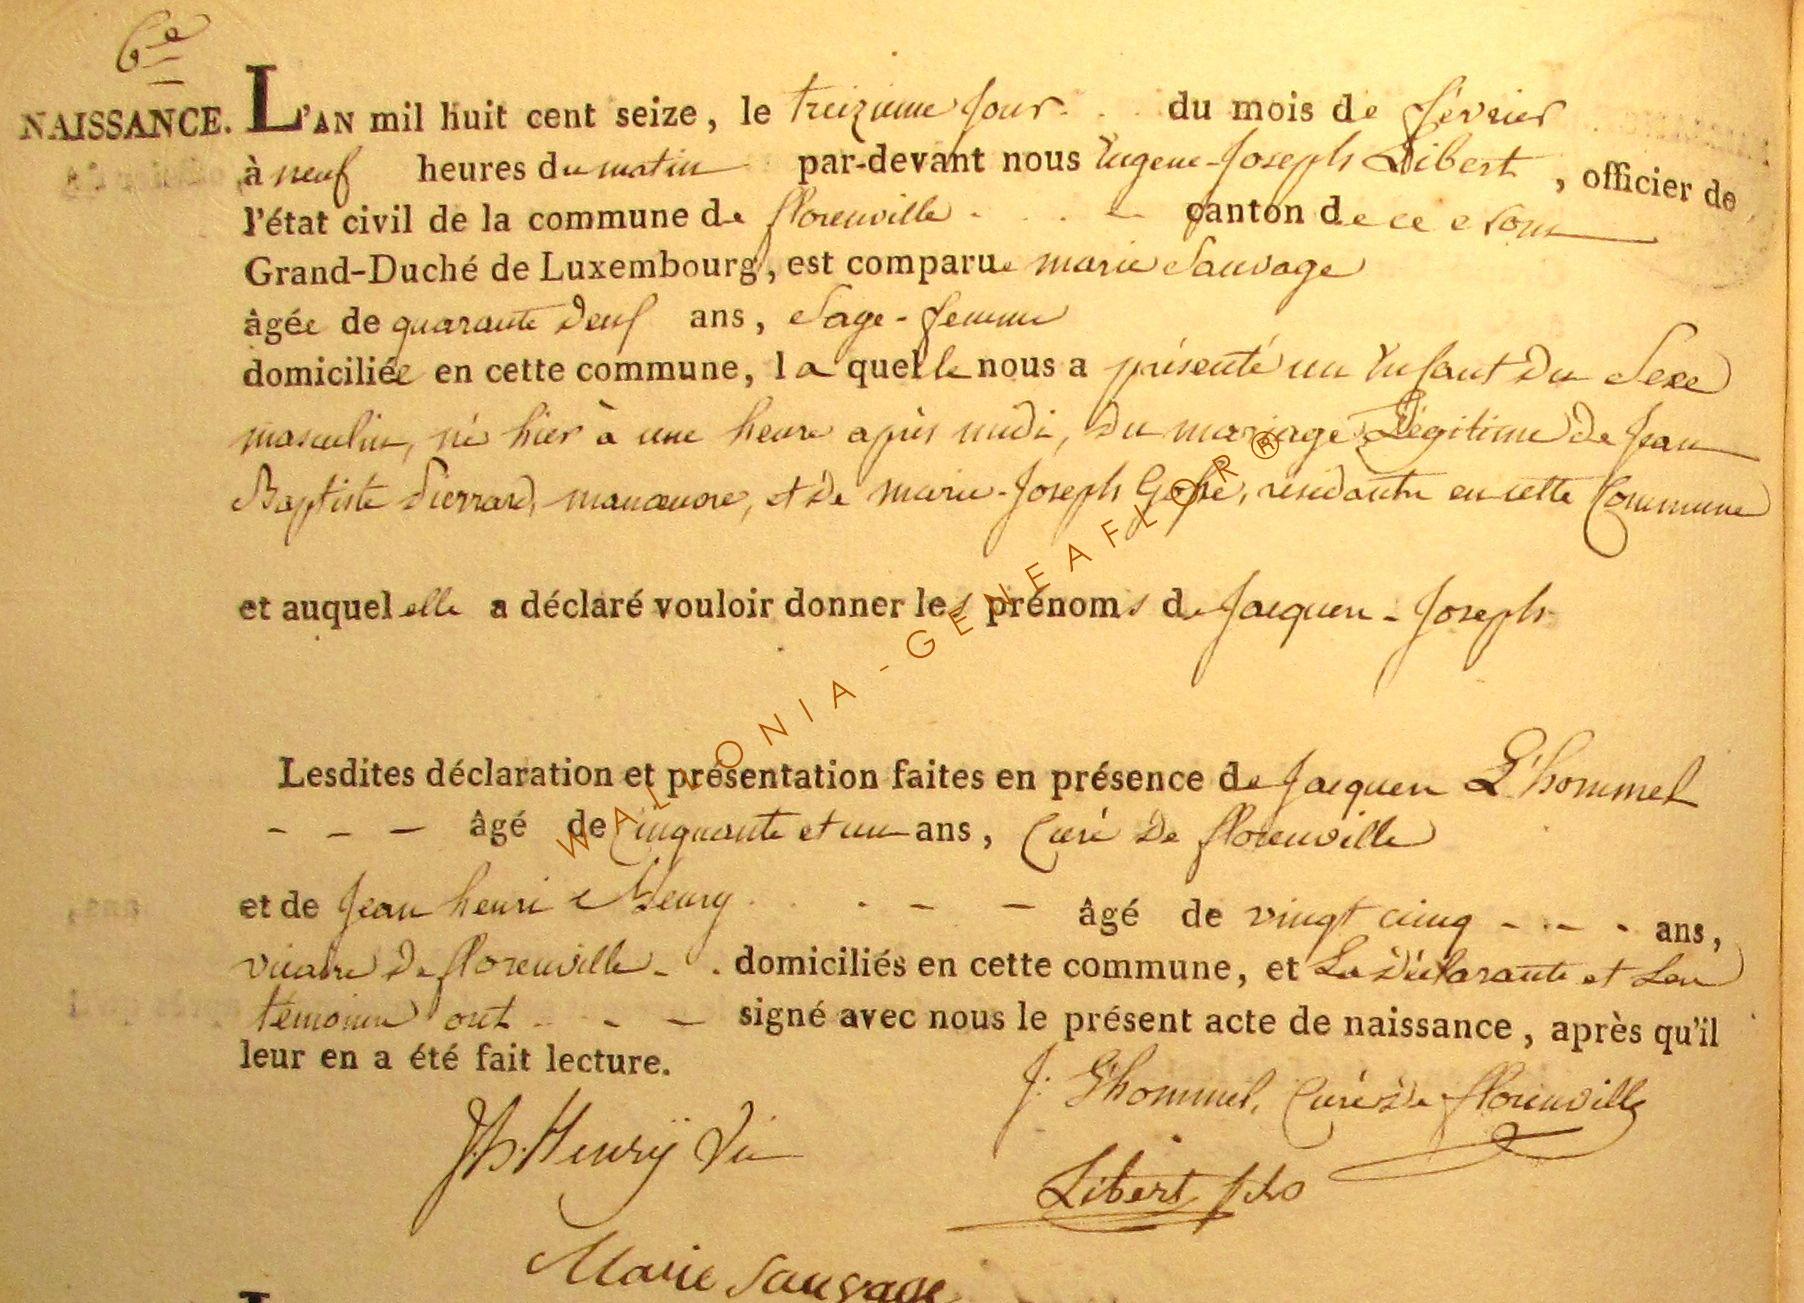 6e
NAISSANCE. L'AN mil huit cent seize, le treizieme jour du mois de février
à neuf heures du matin par-devant nous Eugene-Joseph Libert, officier de
l'état civil de la commune de florenville canton de ce nom
Grand-Duché de Luxembourg, est comparue marie Sauvage
âgée de quarante neuf ans, Sage-femme
domiciliée en cette commune, laquelle nous a présenté un Enfant du Sexe
masculin, né hier à une heure après midi, du mariage Légitime de Jean
Baptiste Pierrard, manœuvre, et de marie-Joseph Goffé, residants en cette Commune
et auquel elle a déclaré vouloir donner les prénoms de Jacques-Joseph
WALLONIA-GENEAFLOR®
Lesdites déclaration et présentation faites en présence de Jacques L'hommel
- - - âgé de Cinquante et un ans, Curé de florenville
et de Jean henri Henry - - âgé de vingt cinq - - - ans,
vicaire de florenville - . domiciliés en cette commune, et La déclarante et Les
témoins ont - - - signé avec nous le présent acte de naissance, après qu'il
leur en a été fait lecture.
J: L'hommel, Curé de florenville
J.h. Henrÿ Vic
Libert fils
Marie Sauvage